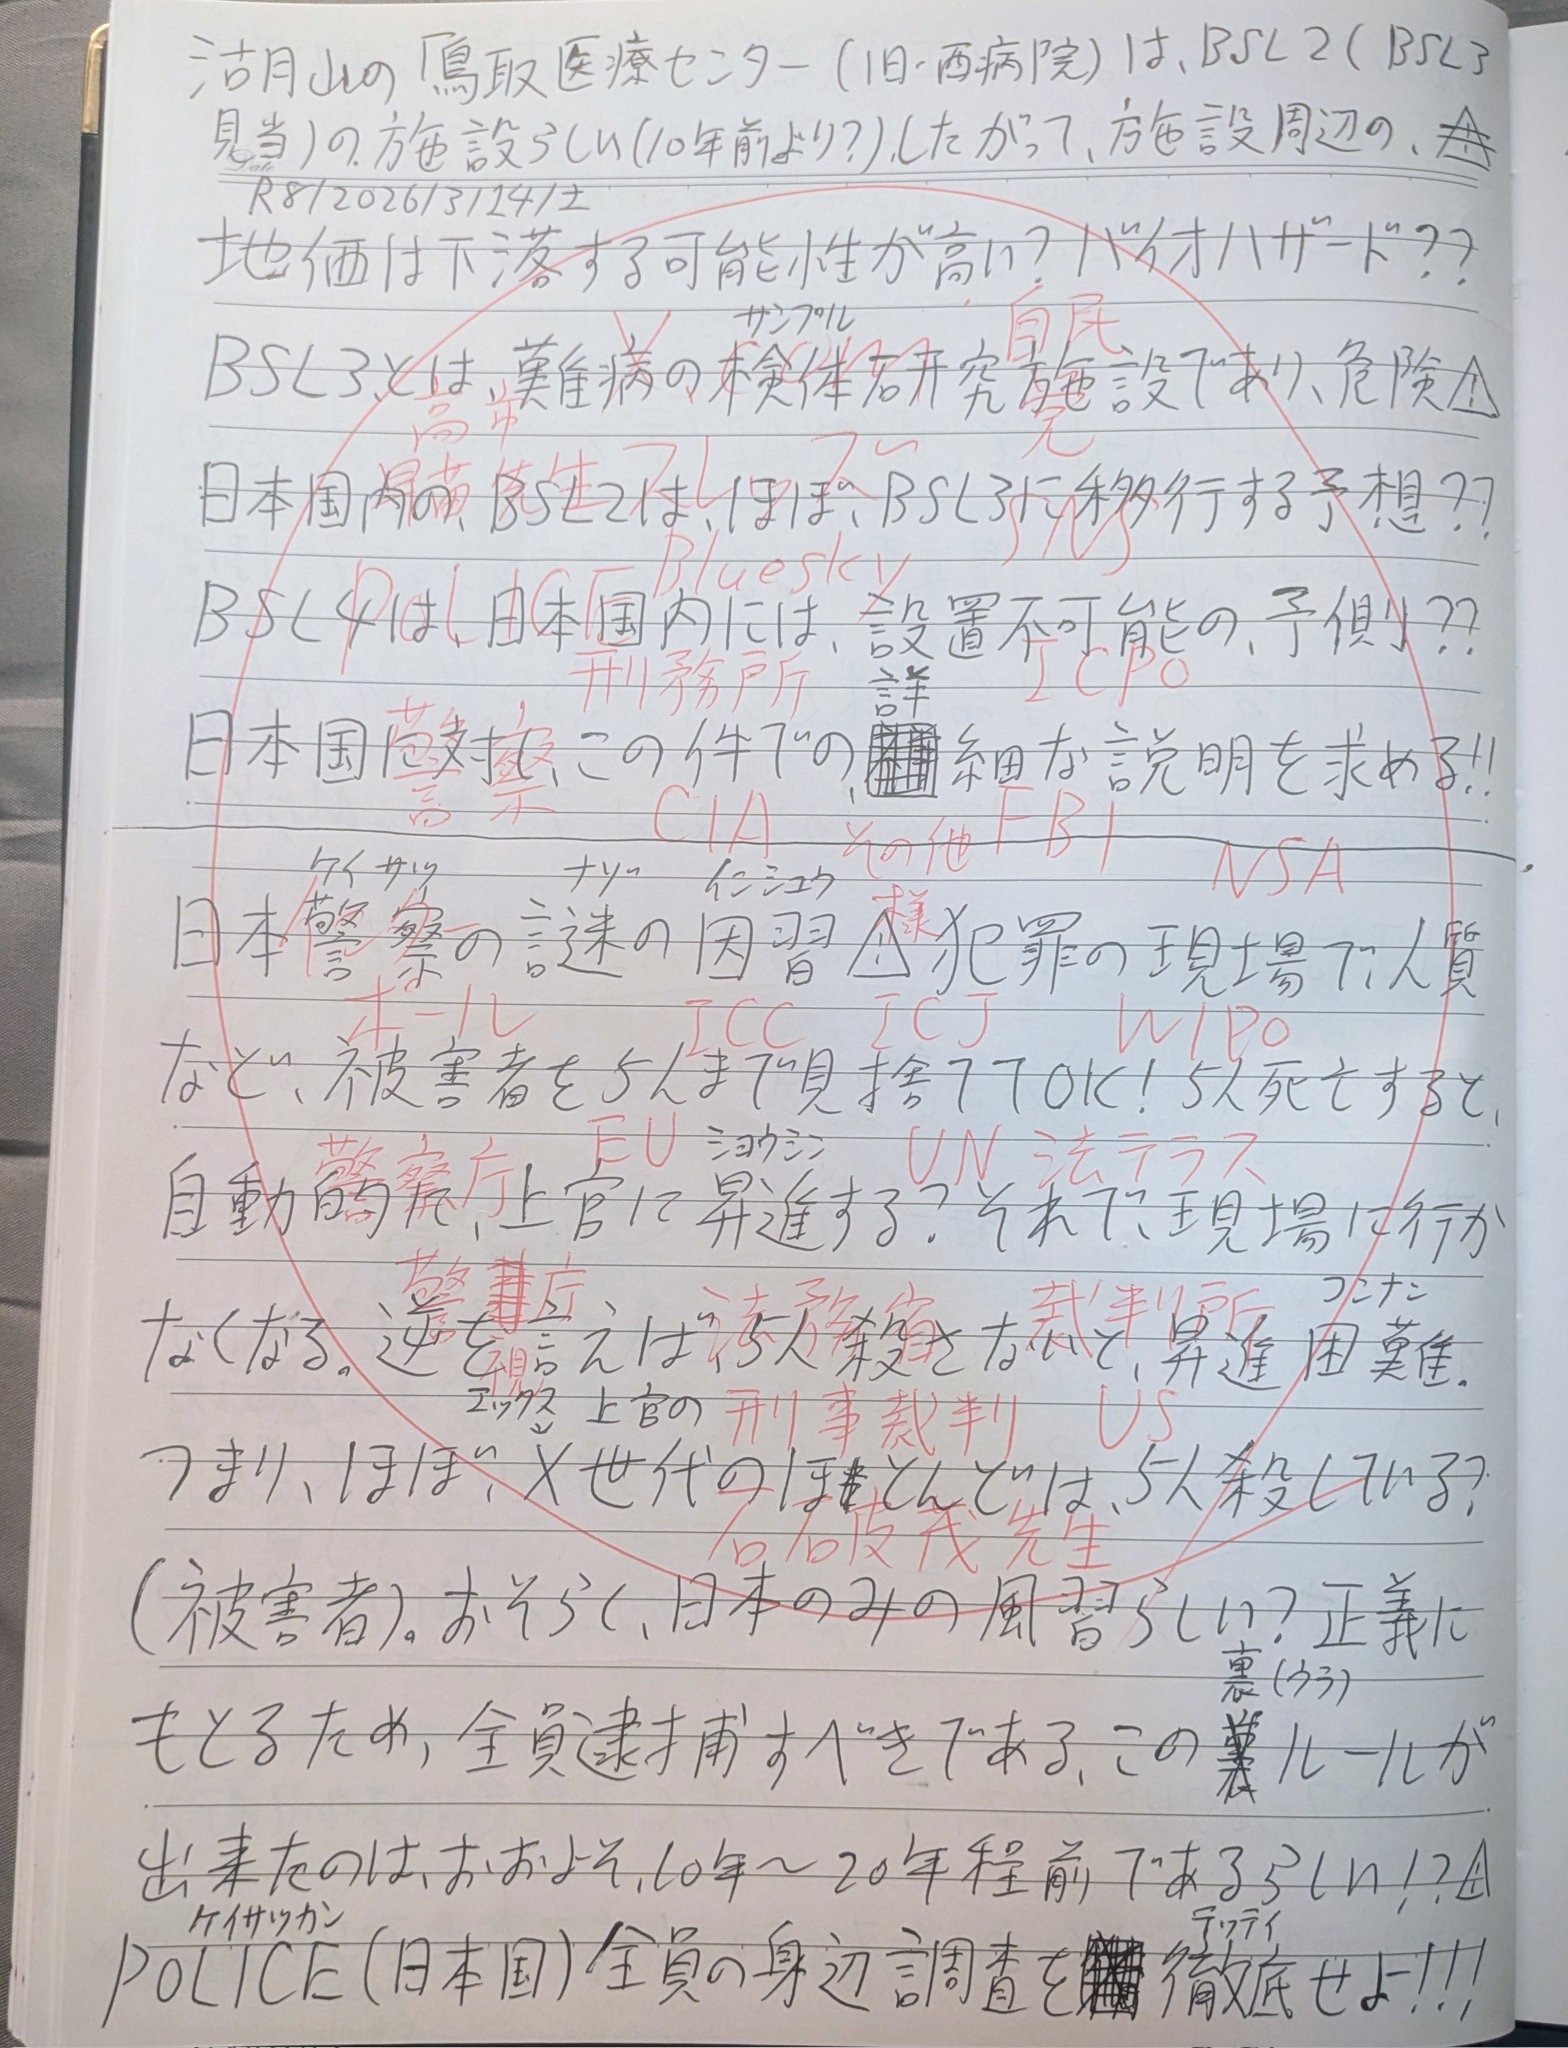 湖山の「鳥取医療センター(旧・西病院)は、BSL2(BSL3
見当)の施設らしい(10年前より?)、したがって、施設周辺の、⚠
R8/2026/3/14/土
地価は下落する可能性が高い?バイオハザード??
サンプル
自民党
BSL3とは、難病の検体研究施設であり、危険⚠
高市
日本国内の、BSL2は、ほぼ、BSL3に移行する予想??
SNS
Bluesky
POLICE
BSL4は、日本国内には、設置不可能の、予側り??
刑務所 ICPO
詳
日本国に対し、この件での、細な説明を求める!!
警察
CIA その他 FBI NSA
様
ケイサツ ナゾ インシュウ
日本警察の謎の因習⚠犯罪の現場で、人質
ボール ICC ICJ WIPO
など、被害者を5人まで見捨ててOK!5人死亡すると、
警察庁 EU UN 法テラス
ショウシン
自動的に、上官に昇進する?それで、現場に行か
警視庁 法務省 裁判所
コンナン
なくなる。逆を言えば、5人殺さないと、昇進困難。
エックス 上官の 刑事裁判 US
つまり、ほぼ、X世代のほとんどは、5人殺している?
石破茂先生
(被害者)。おそらく、日本のみの風習らしい?正義に
裏(ウラ)
もとるため、全員逮捕すべきである、この ルールが
出来たのは、おおよそ、10年~20年程前であるらしい!?⚠
ケイサツカン テッテイ
POLICE(日本国)全員の身辺調査を 徹底せよ!!!